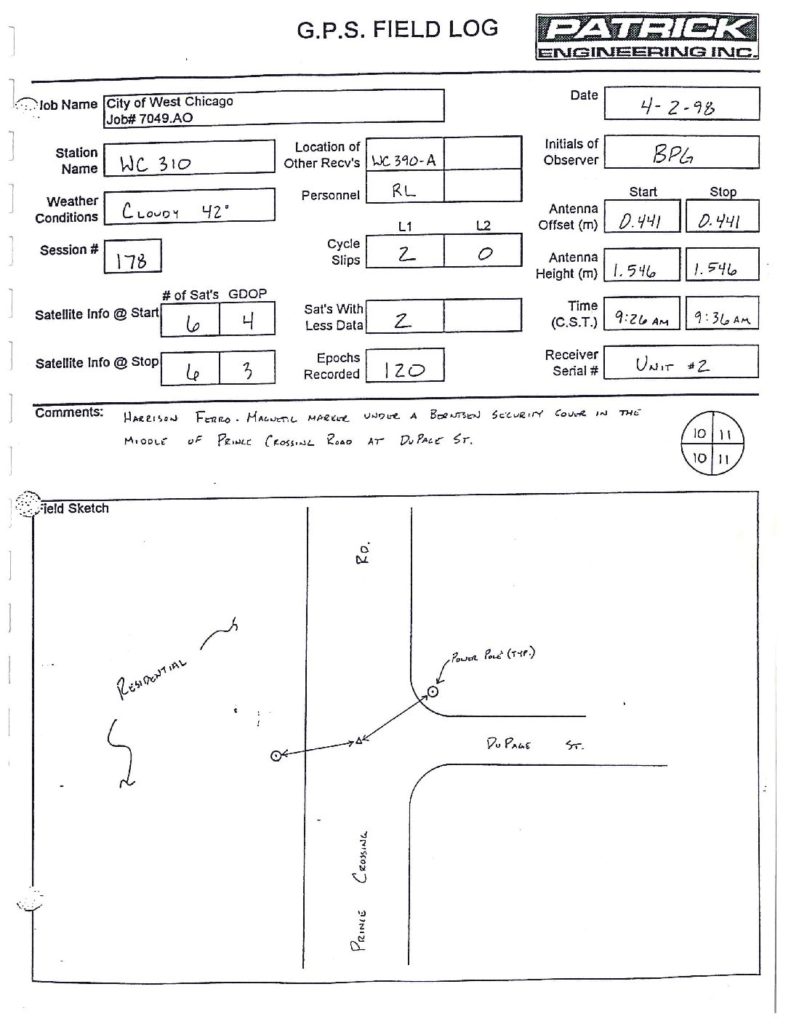 G.P.S. FIELD LOG
PATRICK
ENGINEERING INC.
Job Name City of West Chicago
Job# 7049.AO
Date 4-2-98
Station Name WC 310
Location of Other Recv's WC 390-A
Initials of Observer BPG
Weather Conditions CLOUDY 42°
Personnel RL
Start Stop
Antenna Offset (m) 0.441 0.441
Session # 178
L1 L2
Cycle Slips 2 0
Antenna Height (m) 1.546 1.546
# of Sat's GDOP
Satellite Info @ Start 6 4
Sat's With Less Data 2
Time (C.S.T.) 9:26 AM 9:36 AM
Satellite Info @ Stop 6 3
Epochs Recorded 120
Receiver Serial # UNIT #2
Comments: HARRISON FERRO-MAGNETIC MARKER UNDER A BERNTSEN SECURITY COVER IN THE
MIDDLE OF PRINCE CROSSING ROAD AT DUPAGE ST.
10 11
10 11
Field Sketch
RD.
RESIDENTIAL
POWER POLE (TYP.)
DUPAGE ST.
PRINCE CROSSING